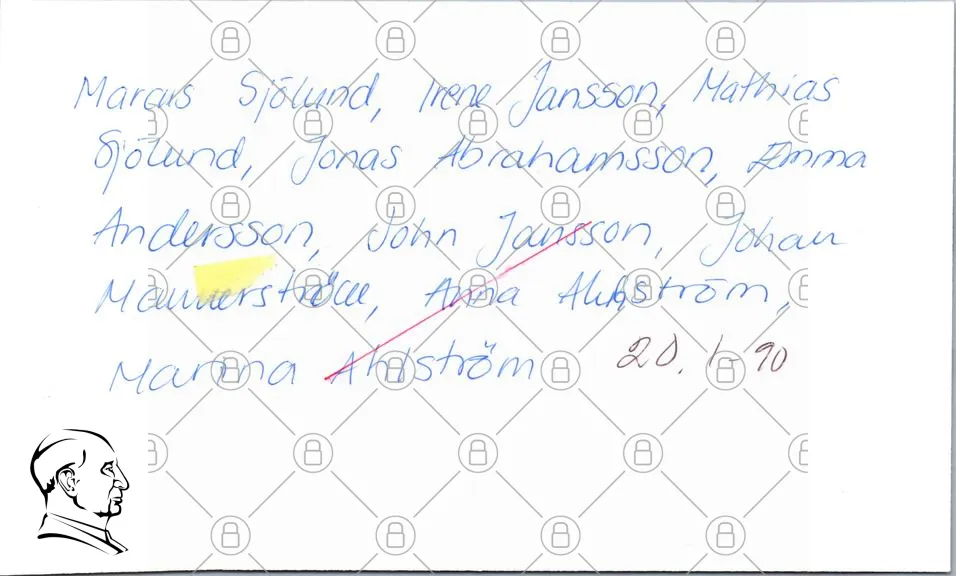 Marcus Sjölund, Irene Jansson, Mathias
Sjölund, Jonas Abrahamsson, Emma
Andersson, John Jansson, Johan
Mannerström, Anna Ahlström,
Marina Ahlström 20.1-90